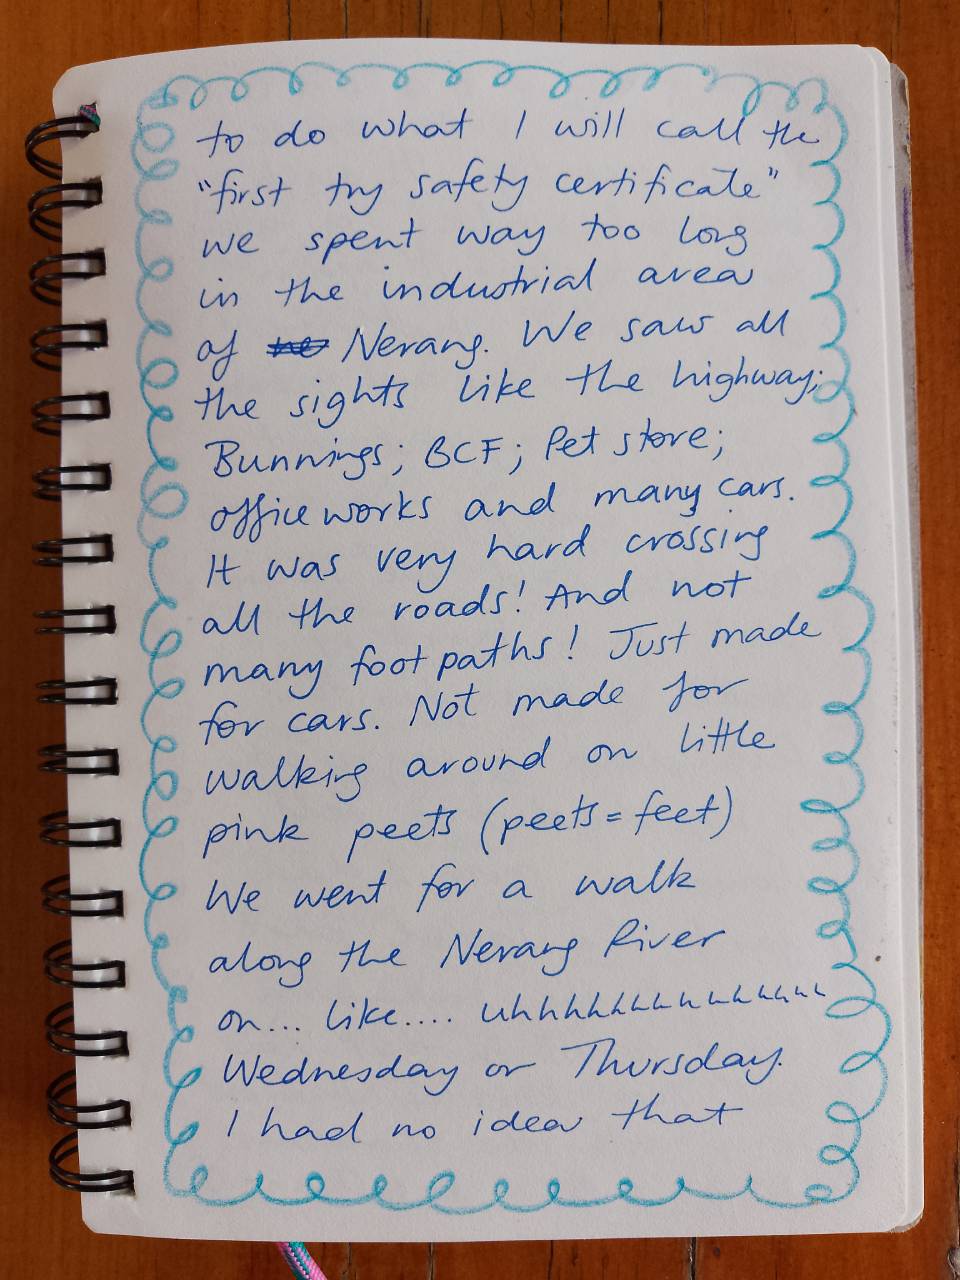 to do what I will call the
"first try safety certificate"
we spent way too long
in the industrial area
of Nerang. We saw all
the sights like the highway;
Bunnings; BCF; Pet store;
office works and many cars.
It was very hard crossing
all the roads! And not
many foot paths! Just made
for cars. Not made for
walking around on little
pink peets (peets = feet)
We went for a walk
along the Nerang River
on... like.... uhhhhhhhhhhhhhh
Wednesday or Thursday.
I had no idea that